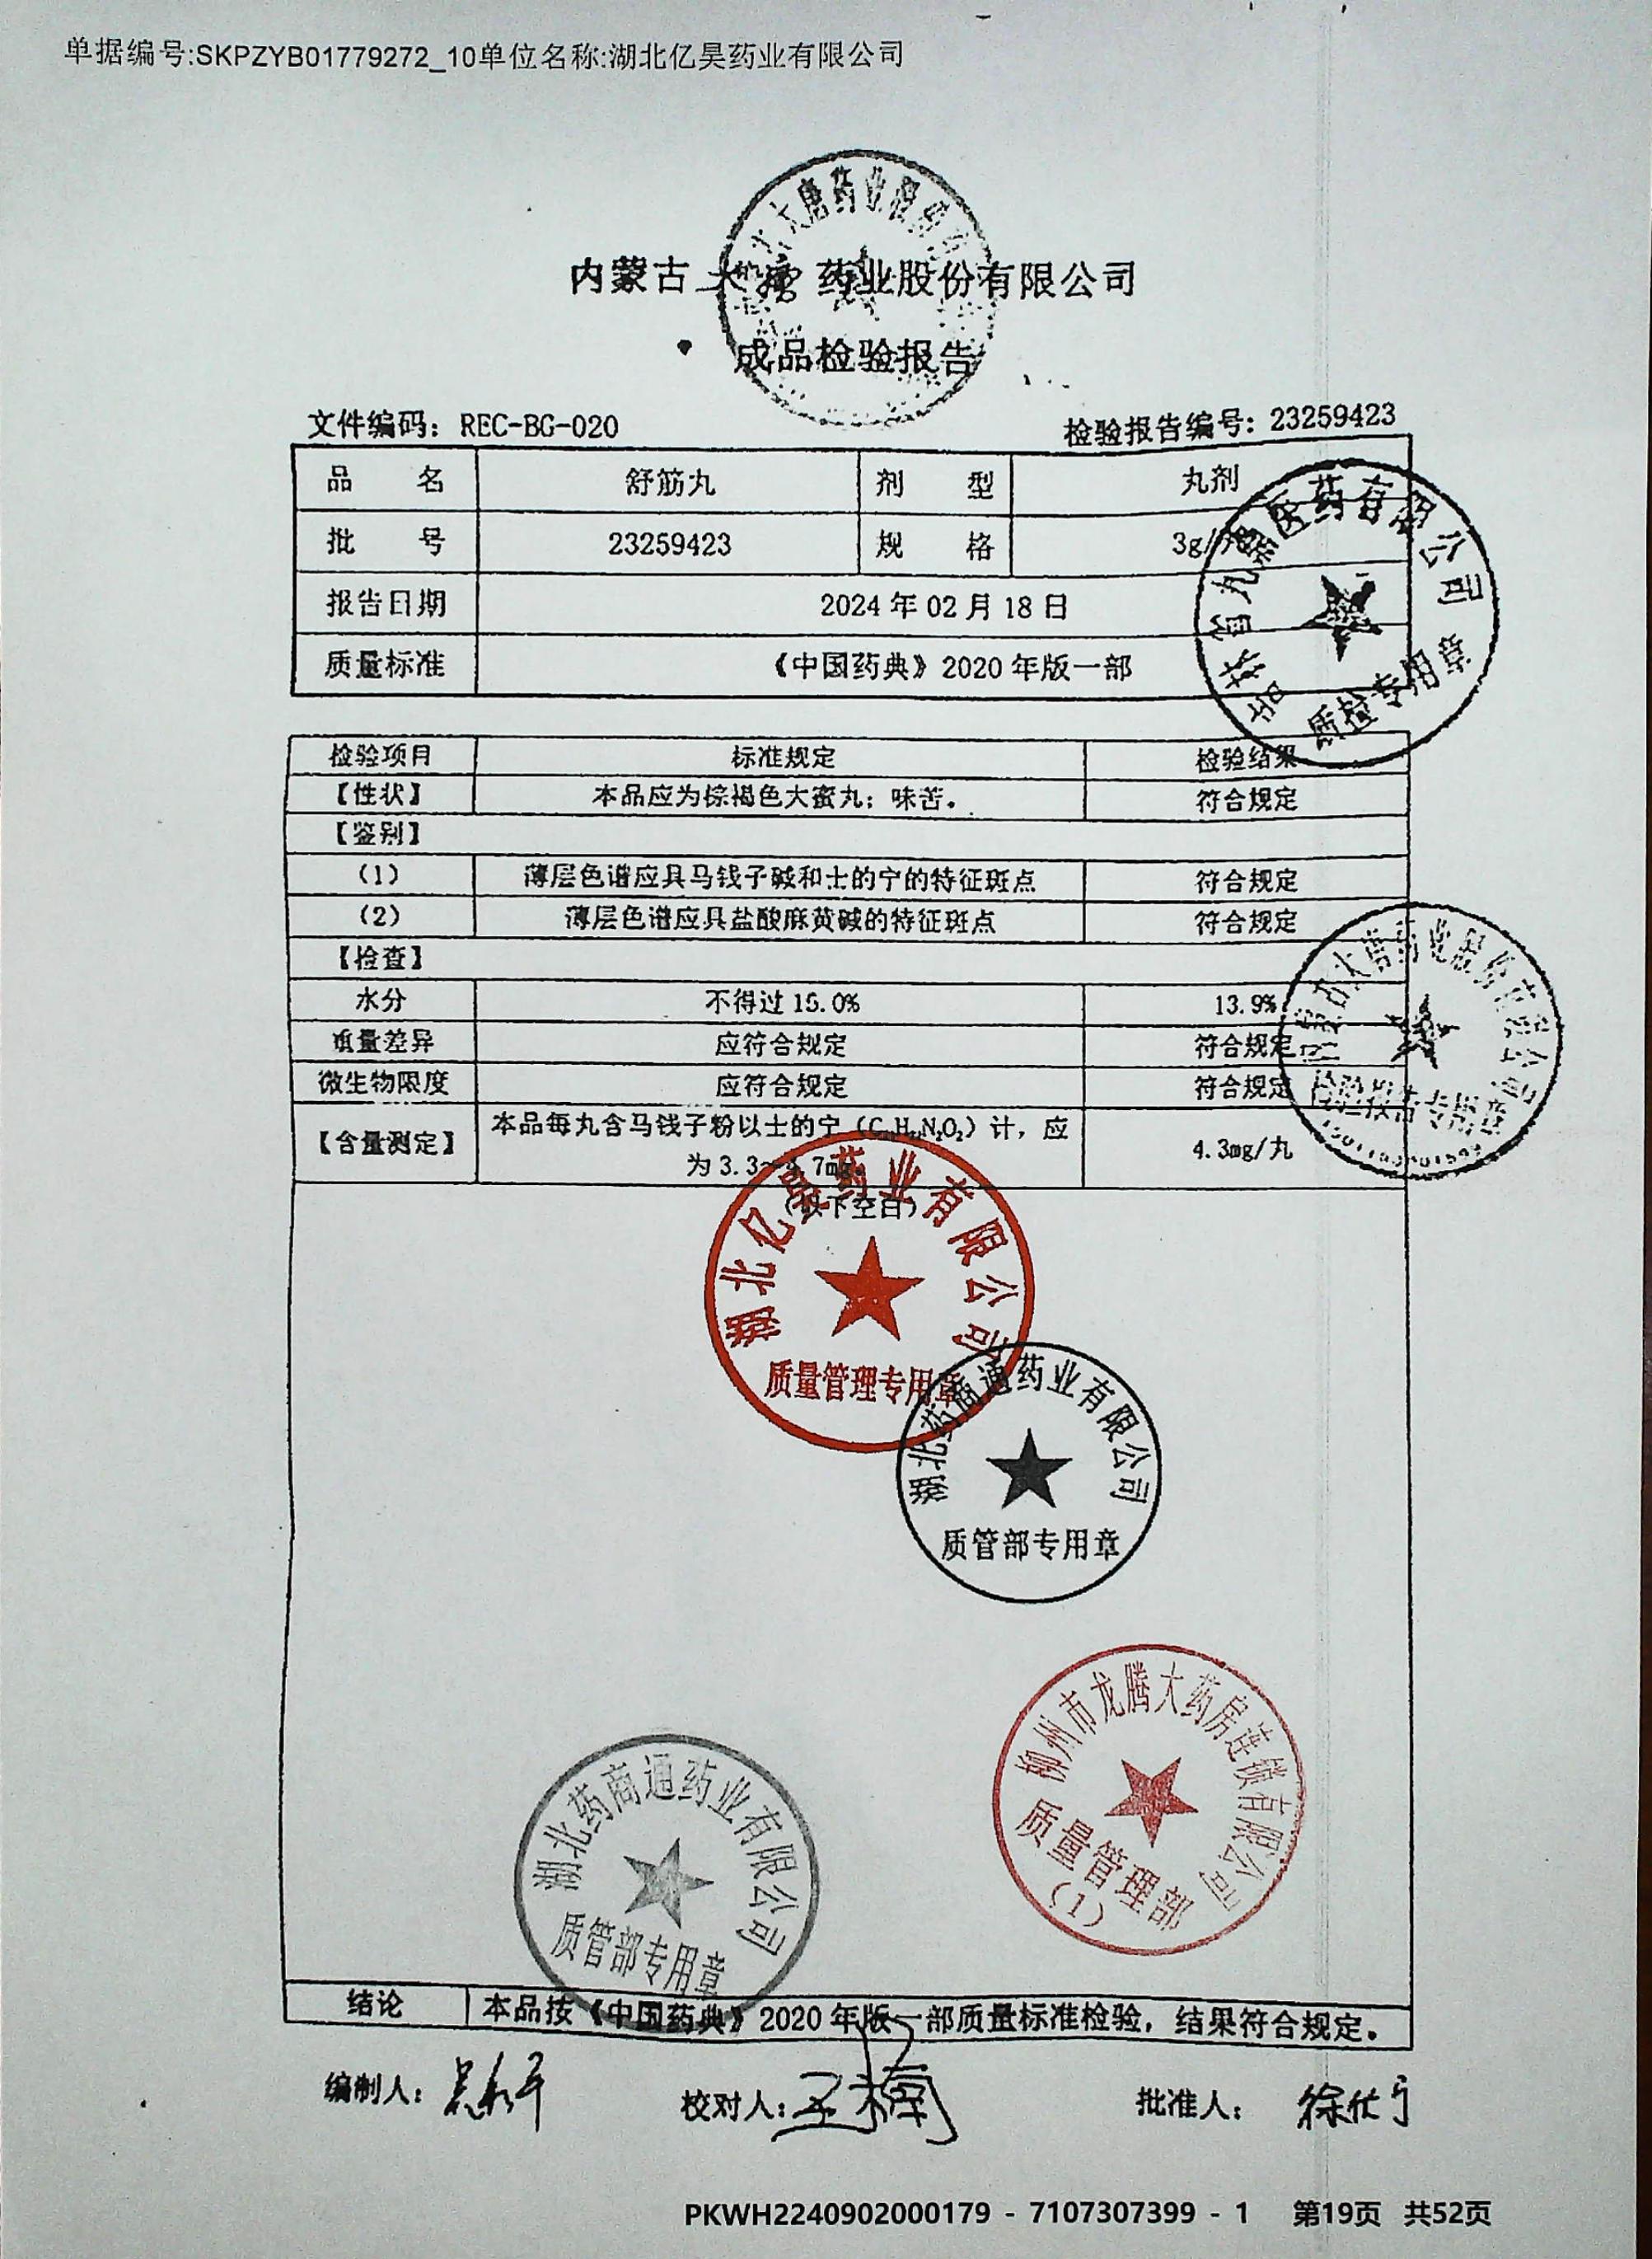 单据编号:SKPZYB01779272_10单位名称:湖北亿昊药业有限公司
内蒙古大唐药业股份有限公司
成品检验报告
文件编码：REC-BG-020 检验报告编号：23259423
品 名 舒筋丸 剂 型 丸剂
批 号 23259423 规 格 3g/
报告日期 2024年02月18日
质量标准 《中国药典》2020年版一部
检验项目 标准规定 检验结果
【性状】 本品应为棕褐色大蜜丸；味苦。 符合规定
【鉴别】
（1） 薄层色谱应具马钱子碱和士的宁的特征斑点 符合规定
（2） 薄层色谱应具盐酸麻黄碱的特征斑点 符合规定
【检查】
水分 不得过15.0% 13.9%
重量差异 应符合规定 符合规定
微生物限度 应符合规定 符合规定
【含量测定】 本品每丸含马钱子粉以士的宁 计，应 4.3mg/丸
为3.3～4.7mg。
（以下空白）
医药有限公司
质检专用章
内蒙古大唐药业股份有限公司
检验报告专用章
湖北亿昊药业有限公司
质量管理专用章
湖北药商通药业有限公司
质管部专用章
柳州市龙腾大药房连锁有限公司
质量管理部
（1）
湖北药商通药业有限公司
质管部专用章
结论 本品按《中国药典》2020年版一部质量标准检验，结果符合规定。
编制人： 校对人：王梅 批准人：
PKWH2240902000179 - 7107307399 - 1 第19页 共52页